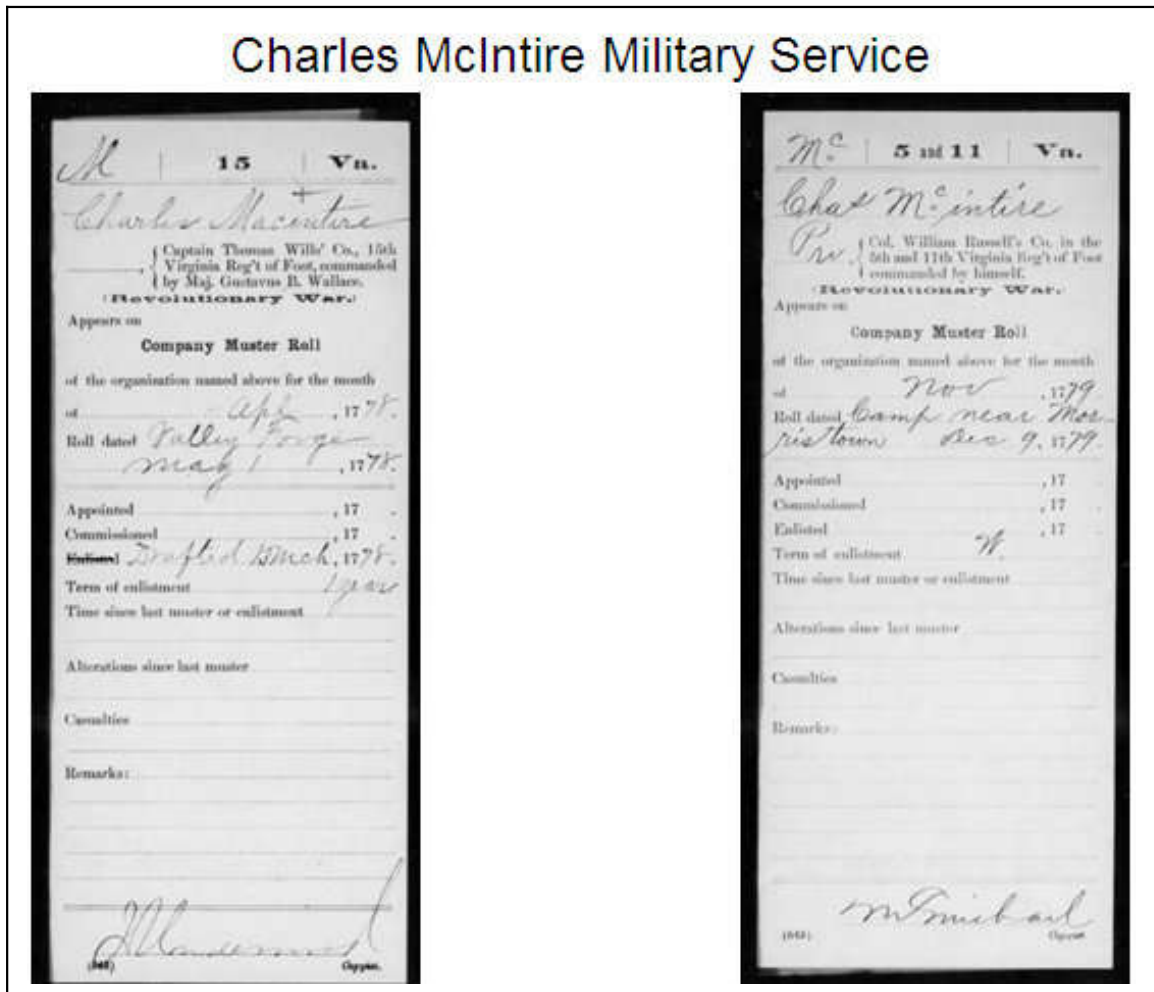 Charles McIntire Military Service
M | 15 | Va.
Charles Macintire
Captain Thomas Wills' Co., 15th
Virginia Reg't of Foot, commanded
by Maj. Gustavus B. Wallace.
(Revolutionary War.)
Appears on
Company Muster Roll
of the organization named above for the month
of Apl, 1778.
Roll dated Valley Forge
May 1, 1778.
Appointed , 17 .
Commissioned , 17 .
Enlisted Drafted Mch, 1778.
Term of enlistment 1 year
Time since last muster or enlistment
Alterations since last muster
Casualties
Remarks:
(545) Copyist.
Mc | 5 and 11 | Va.
Chas McIntire
Prv, Col. William Russell's Co. in the
5th and 11th Virginia Reg't of Foot
commanded by himself.
(Revolutionary War.)
Appears on
Company Muster Roll
of the organization named above for the month
of Nov, 1779
Roll dated Camp near Mor-
ristown Dec 9, 1779.
Appointed , 17 .
Commissioned , 17 .
Enlisted , 17 .
Term of enlistment W.
Time since last muster or enlistment
Alterations since last muster
Casualties
Remarks:
(545) Copyist.